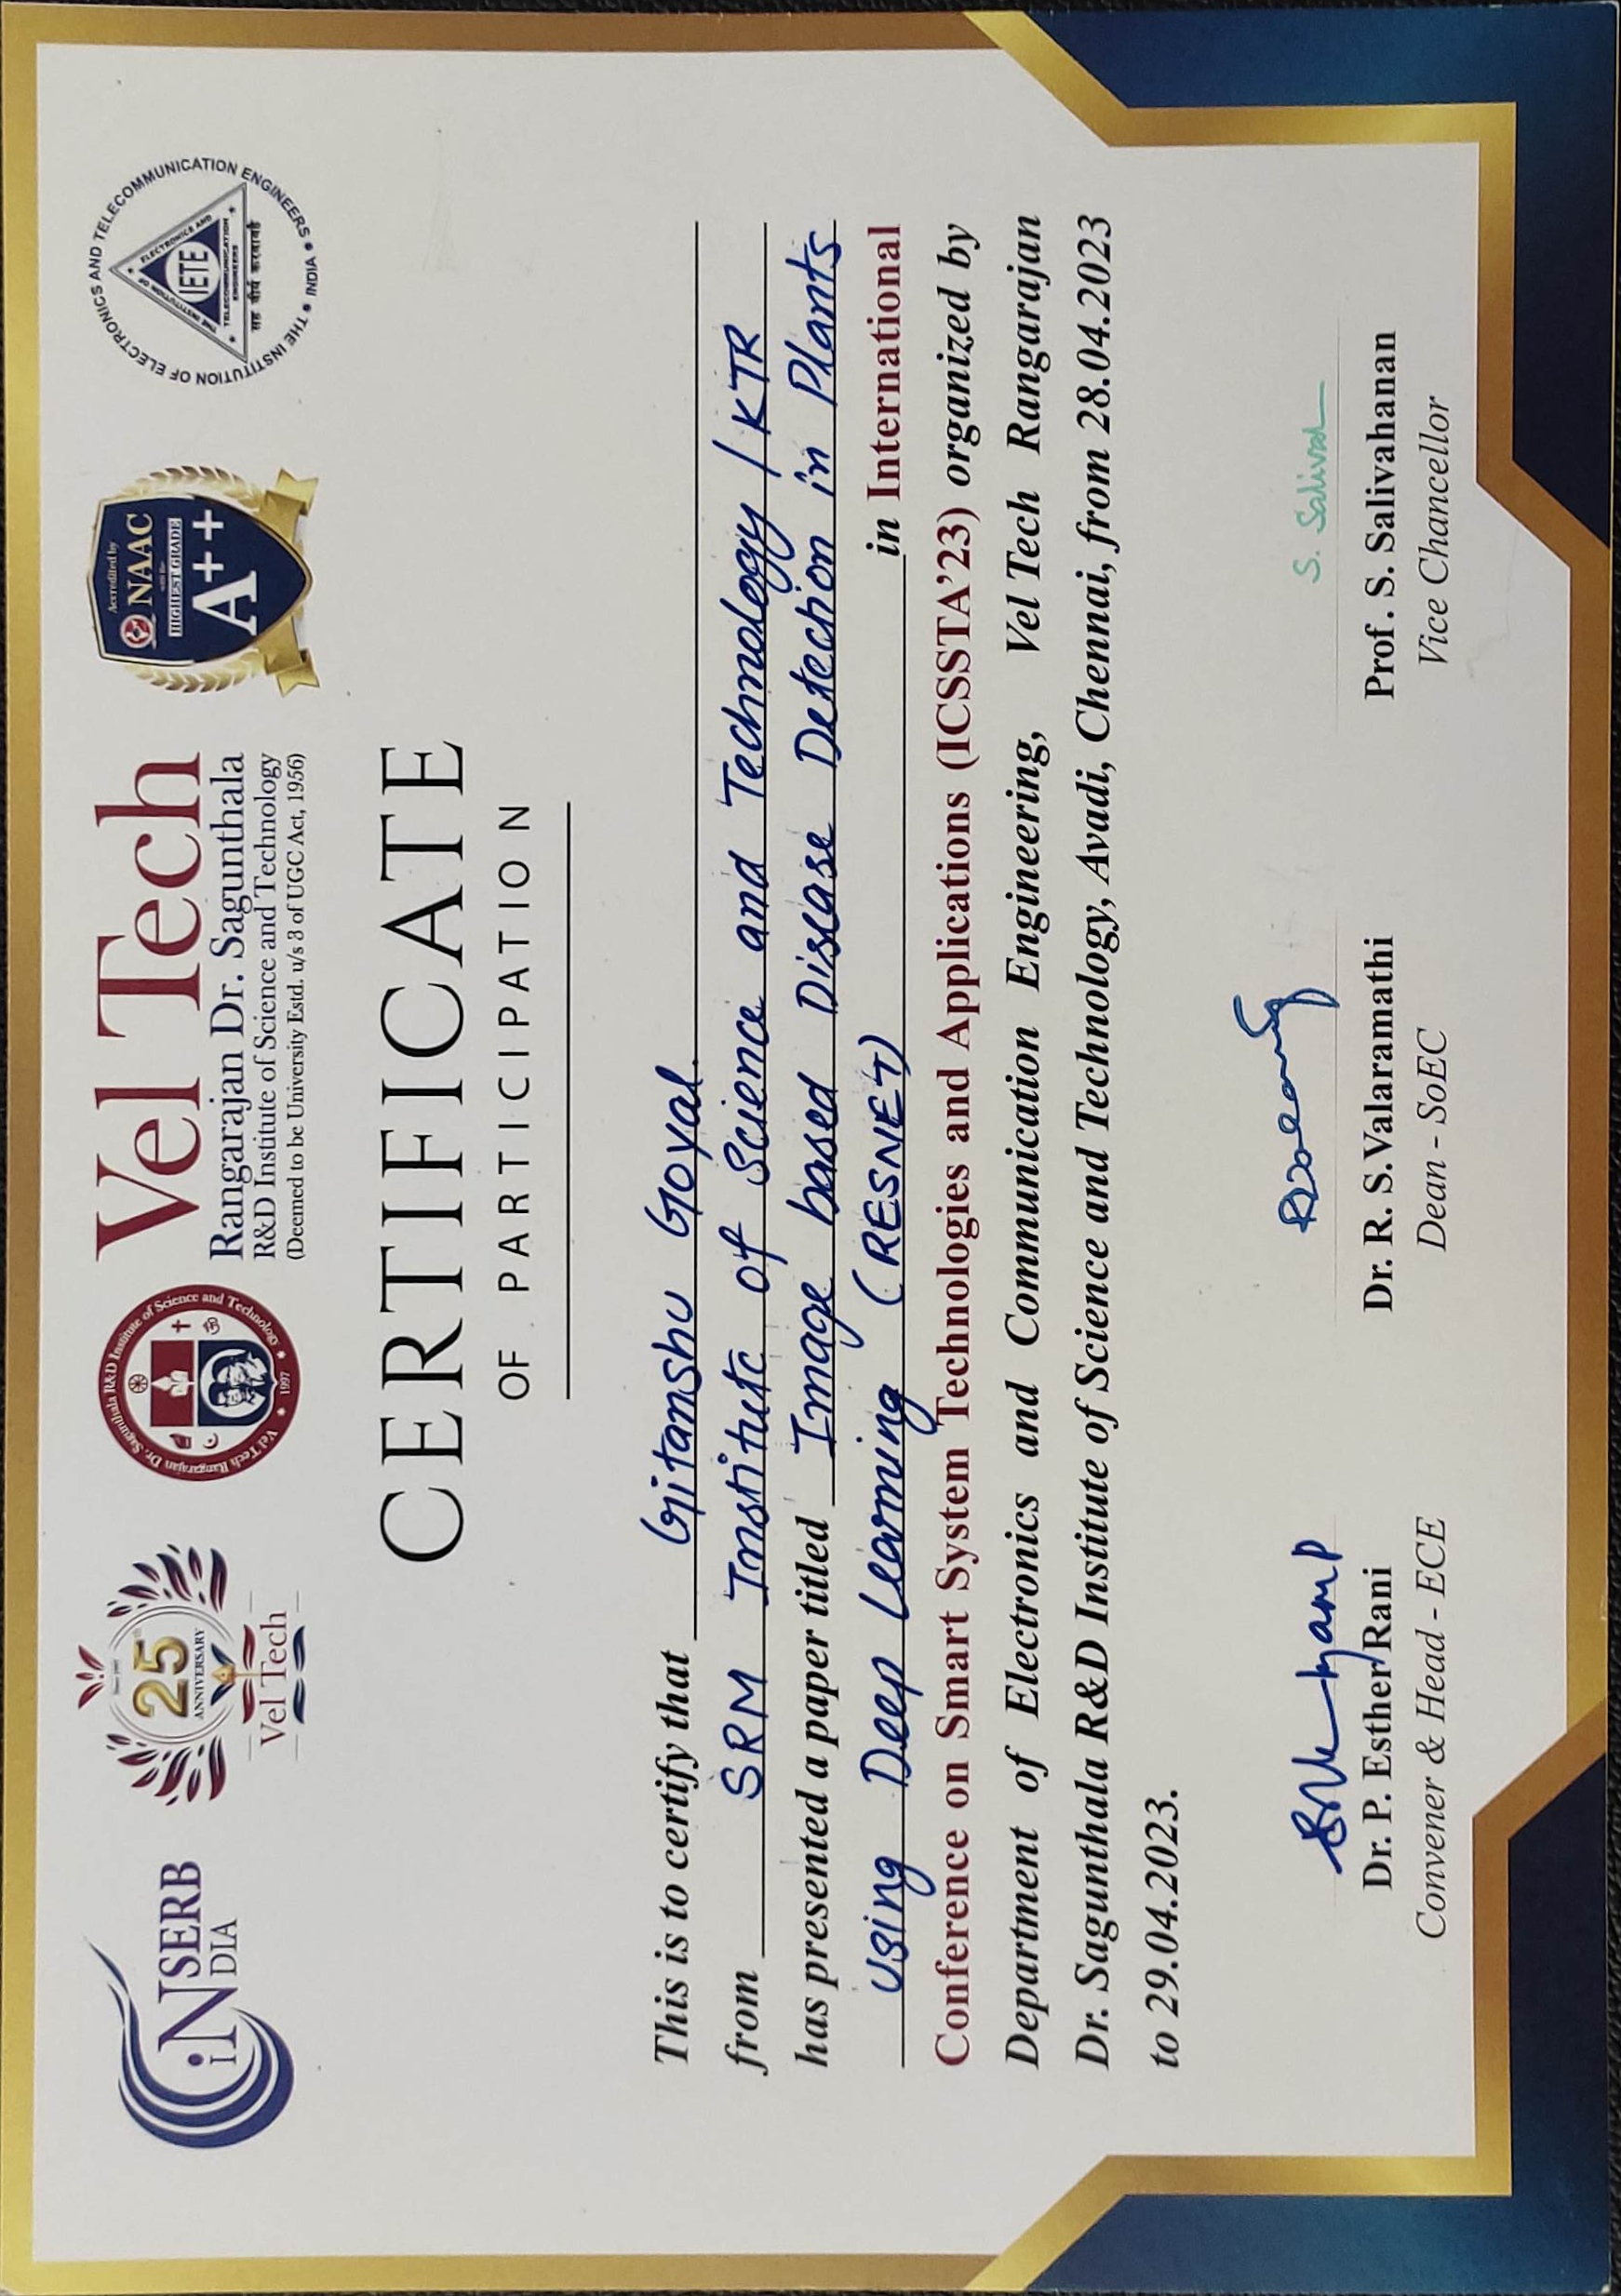 iNSERB
iNDIA
Since 1997
25th
ANNIVERSARY
Vel Tech
Vel Tech Rangarajan Dr. Sagunthala R&D Institute of Science and Technology
* 1997 *
Vel Tech
Rangarajan Dr. Sagunthala
R&D Institute of Science and Technology
(Deemed to be University Estd. u/s 3 of UGC Act, 1956)
Accredited by
NAAC
with the
HIGHEST GRADE
A++
THE INSTITUTION OF ELECTRONICS AND TELECOMMUNICATION ENGINEERS
INDIA
THE INSTITUTION OF ELECTRONICS AND
IETE
TELECOMMUNICATION
ENGINEERS
सह वीर्यं करवावहै
CERTIFICATE
OF PARTICIPATION
This is to certify that Gitanshu Goyal.
from SRM Institute of Science and Technology / KTR
has presented a paper titled Image based Disease Detection in Plants
Using Deep Learning (RESNET) in International
Conference on Smart System Technologies and Applications (ICSSTA'23) organized by
Department of Electronics and Communication Engineering, Vel Tech Rangarajan
Dr. Sagunthala R&D Institute of Science and Technology, Avadi, Chennai, from 28.04.2023
to 29.04.2023.
S. Salivah
Dr. P. Esther Rani Dr. R. S.Valaramathi Prof. S. Salivahanan
Convener & Head - ECE Dean - SoEC Vice Chancellor